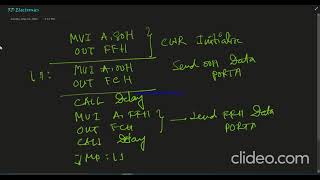 MVI A,80H
OUT FFH } CWR Initialize
L1: MVI A,00H
OUT FCH } Send 00H Data PORTA
CALL Delay
MVI A,FFH
OUT FCH
CALL Delay } → Send FFH Data PORTA
JMP: L1
clideo.com